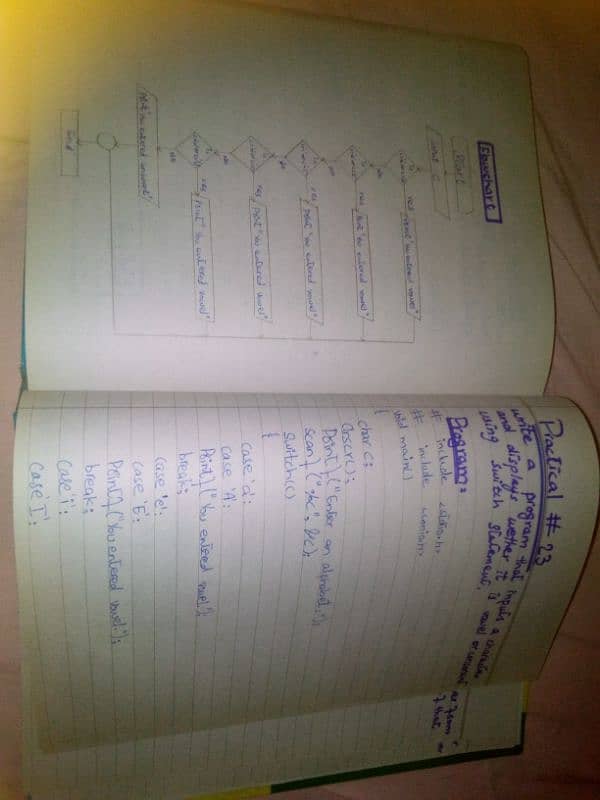 Flowchart
Start
input c
yes
Print "You entered vowel"
no
yes
Print "You entered vowel"
no
yes
Print "You entered vowel"
no
yes
Print "You entered vowel"
no
yes
Print "You entered vowel"
no
End
Practical # 23
write a program that inputs a character
and displays wether it is vowel or
using switch statement.
Program:
# include <stdio.h>
# include <conio.h>
void main()
{
char c;
clrscr();
Printf("Enter an alphabet:");
scanf("%c", &c);
Switch(c)
{
case 'a':
case 'A':
Printf("You entered vowel");
break;
case 'e':
case 'E':
Printf("You entered vowel.");
break;
case 'i':
case 'I':